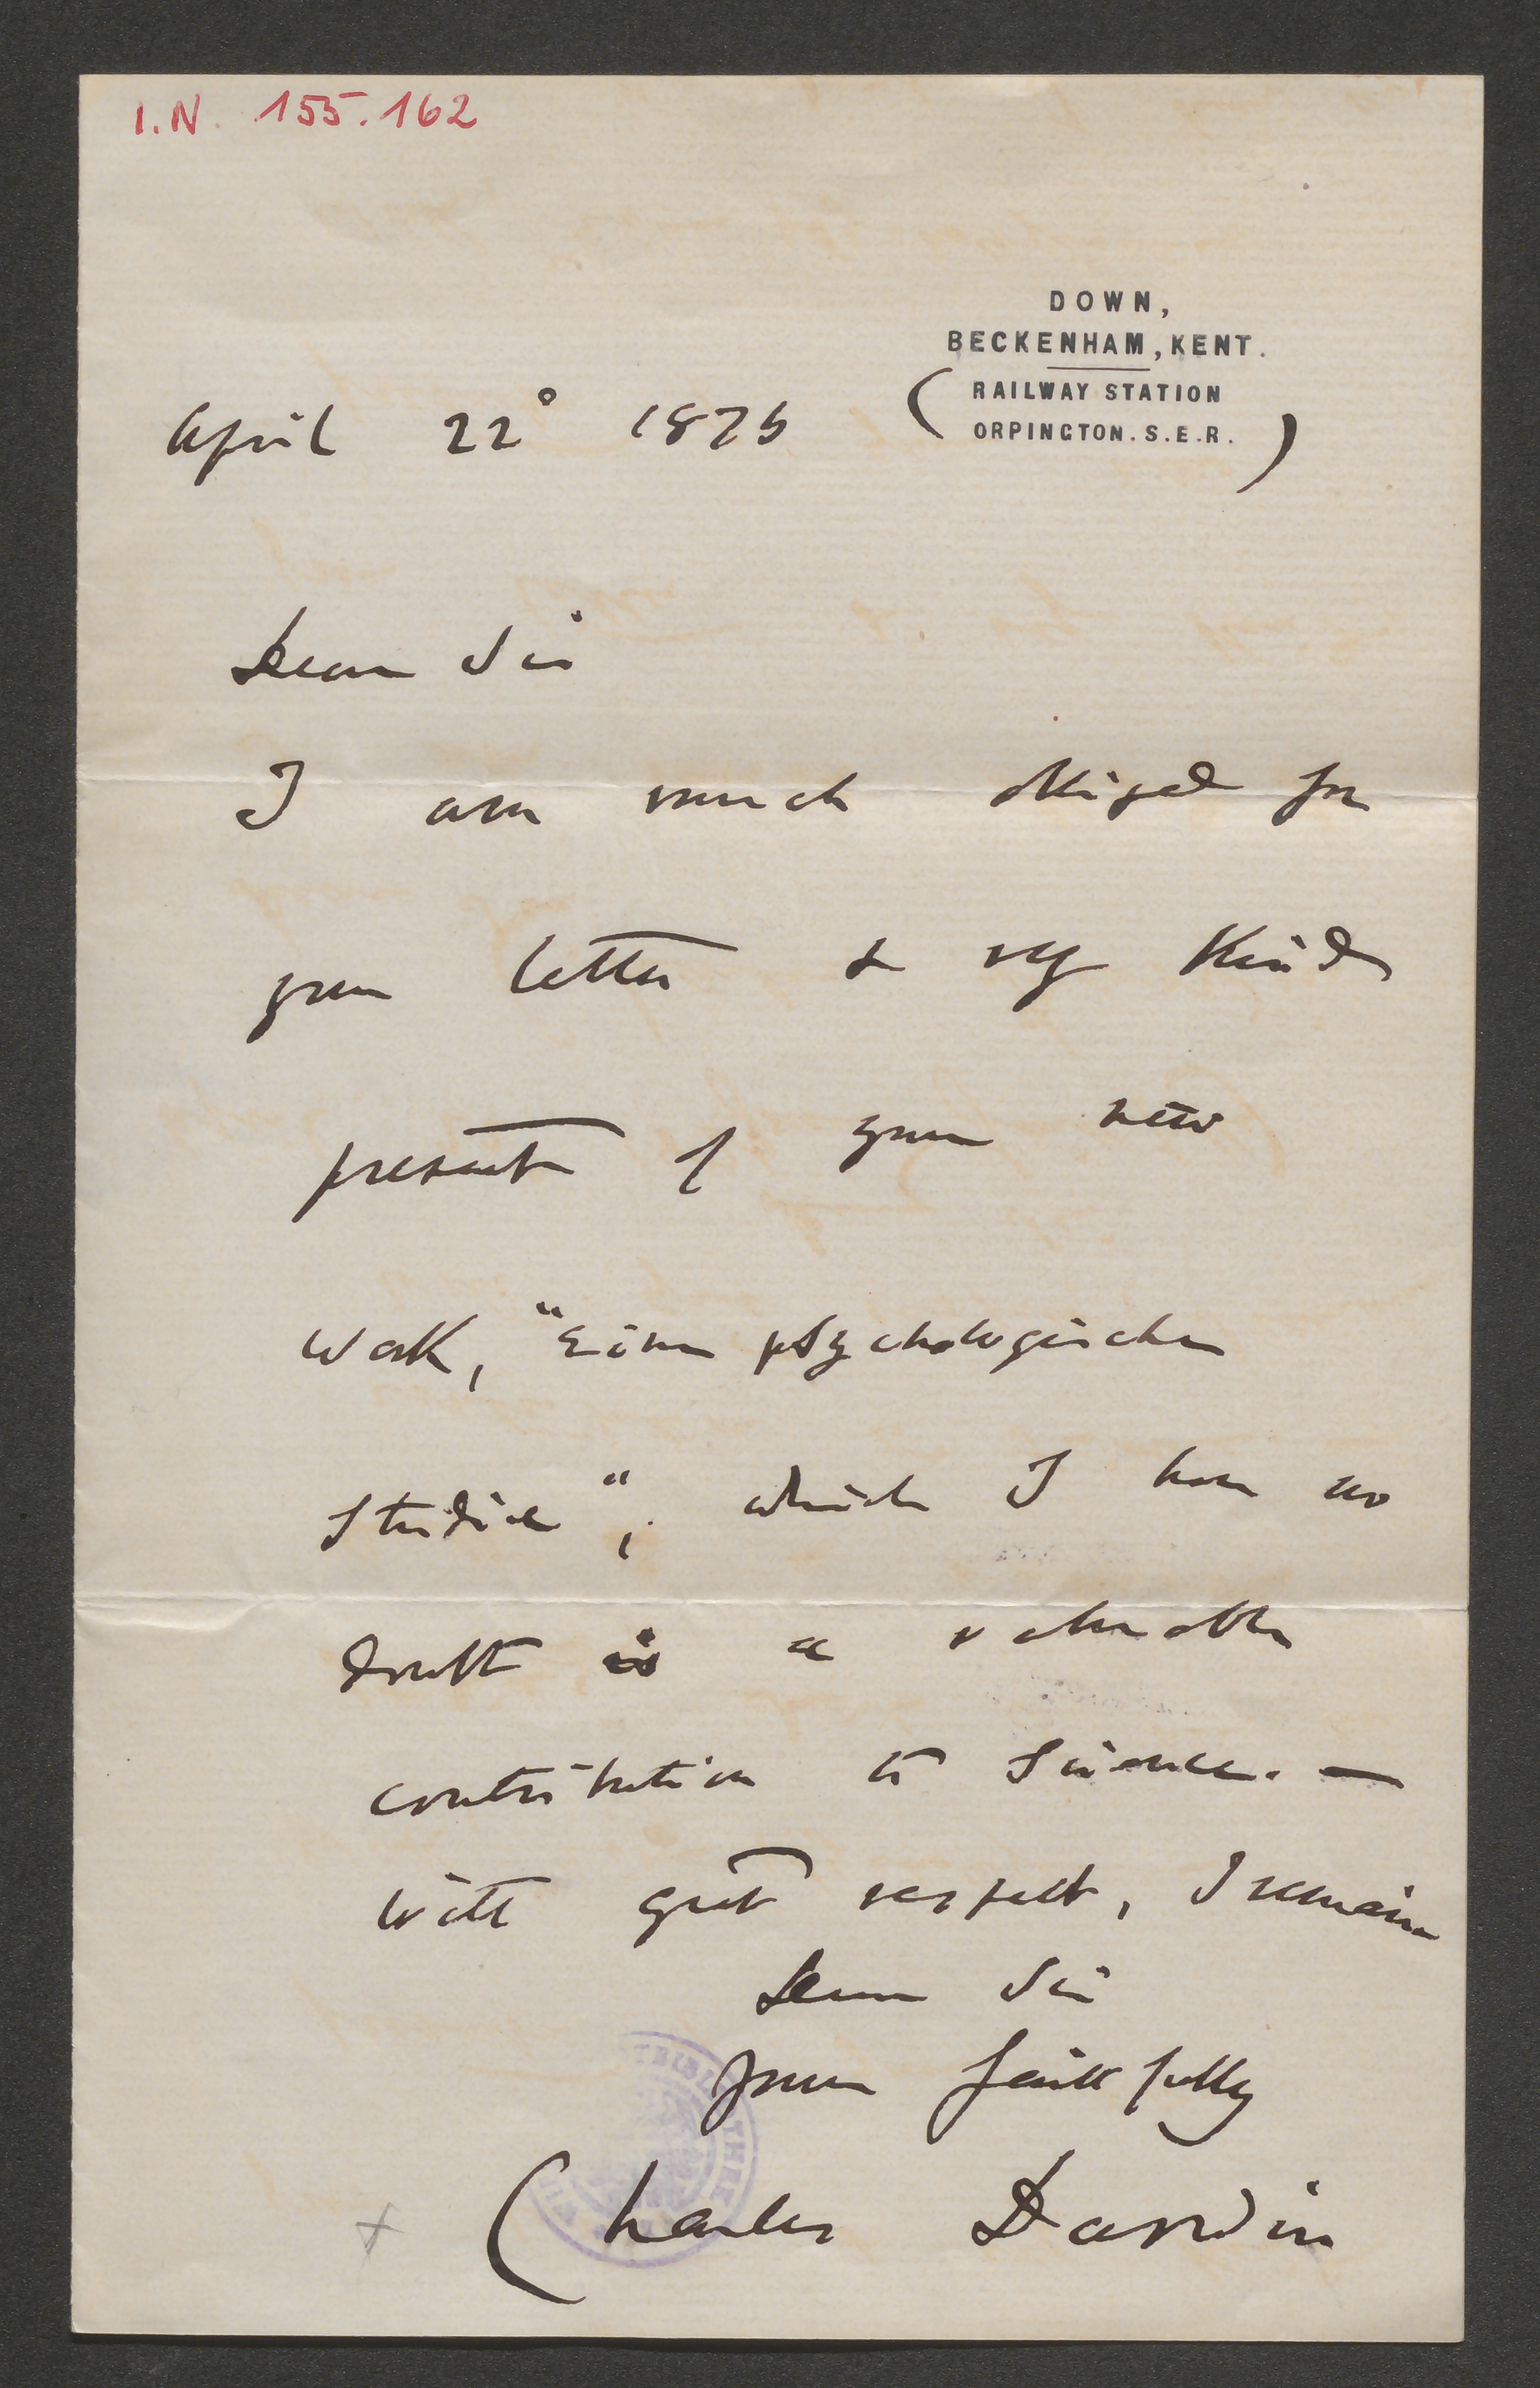 I.N. 155.162
DOWN,
BECKENHAM, KENT.
RAILWAY STATION
ORPINGTON. S.E.R.
April 22° 1875
Dear Sir
I am much obliged for
your letter & very kind
present of your new
work, "Eine psychologische
Studie", which I have no
doubt is a valuable
contribution to Science. —
With great respect, I remain
Dear Sir
Yours faithfully
Charles Darwin